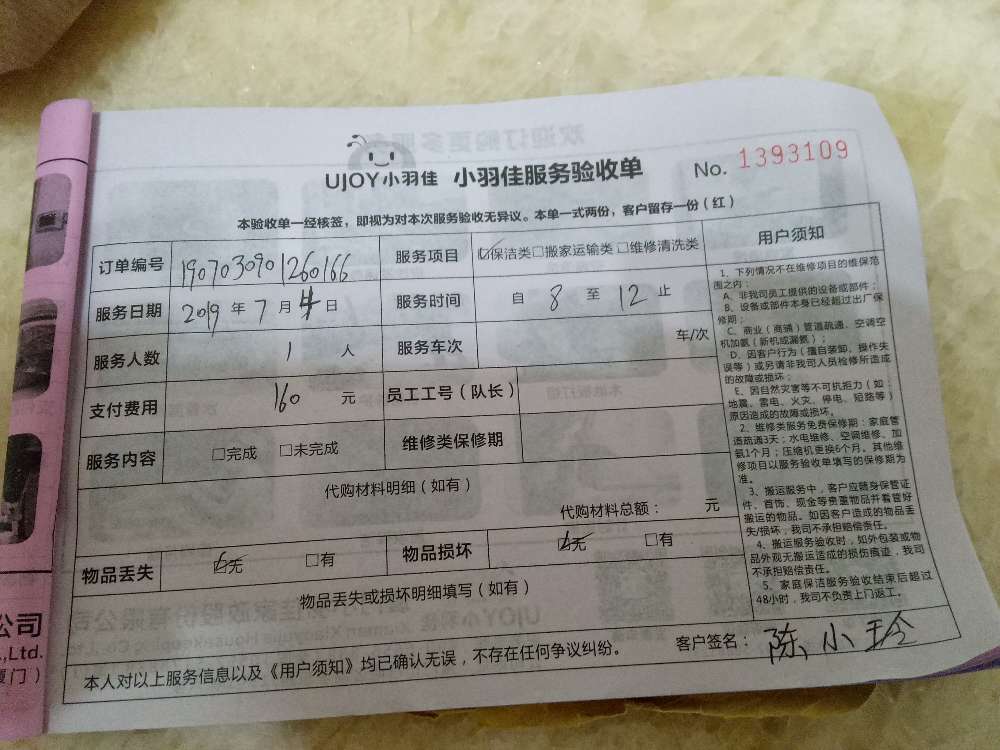 UJOY小羽佳 小羽佳服务验收单 No. 1393109
本验收单一经核签，即视为对本次服务验收无异议。本单一式两份，客户留存一份（红）
订单编号 1907030901260166 服务项目 ☑保洁类□搬家运输类□维修清洗类
服务日期 2019 年 7 月 4 日 服务时间 自 8 至 12 止
服务人数 1 人 服务车次 车/次
支付费用 160 元 员工工号（队长）
服务内容 □完成 □未完成 维修类保修期
代购材料明细（如有）
代购材料总额： 元
物品丢失 ☑无 □有 物品损坏 ☑无 □有
物品丢失或损坏明细填写（如有）
本人对以上服务信息以及《用户须知》均已确认无误，不存在任何争议纠纷。 客户签名： 陈小玲
用户须知
1、下列情况不在维修项目的维保范
围之内：
A、非我司员工提供的设备或部件；
B、设备或部件本身已经超过出厂保
修期；
C、商业（商铺）管道疏通、空调空
机加氨（新机或漏氨）；
D、因客户行为（擅自装卸、操作失
误等）或另请非我司人员检修所造成
的故障或损坏；
E、因自然灾害等不可抗拒力（如：
地震、雷电、火灾、停电、短路等）
原因造成的故障或损坏。
2、维修类服务免费保修期：家庭管
道疏通3天；水电维修、空调维修、加
氨1个月；压缩机更换6个月。其他维
修项目以服务验收单填写的保修期为
准。
3、搬运服务中，客户应随身保管证
件、首饰、现金等贵重物品并看管好
搬运的物品。如因客户造成的物品丢
失/损坏，我司不承担赔偿责任。
4、搬运服务验收时，如外包装或物
品外观无搬运造成的损伤痕迹，我司
不承担赔偿责任。
5、家庭保洁服务验收结束后超过
48小时，我司不负责上门返工。
公司
.,Ltd.
厦门）